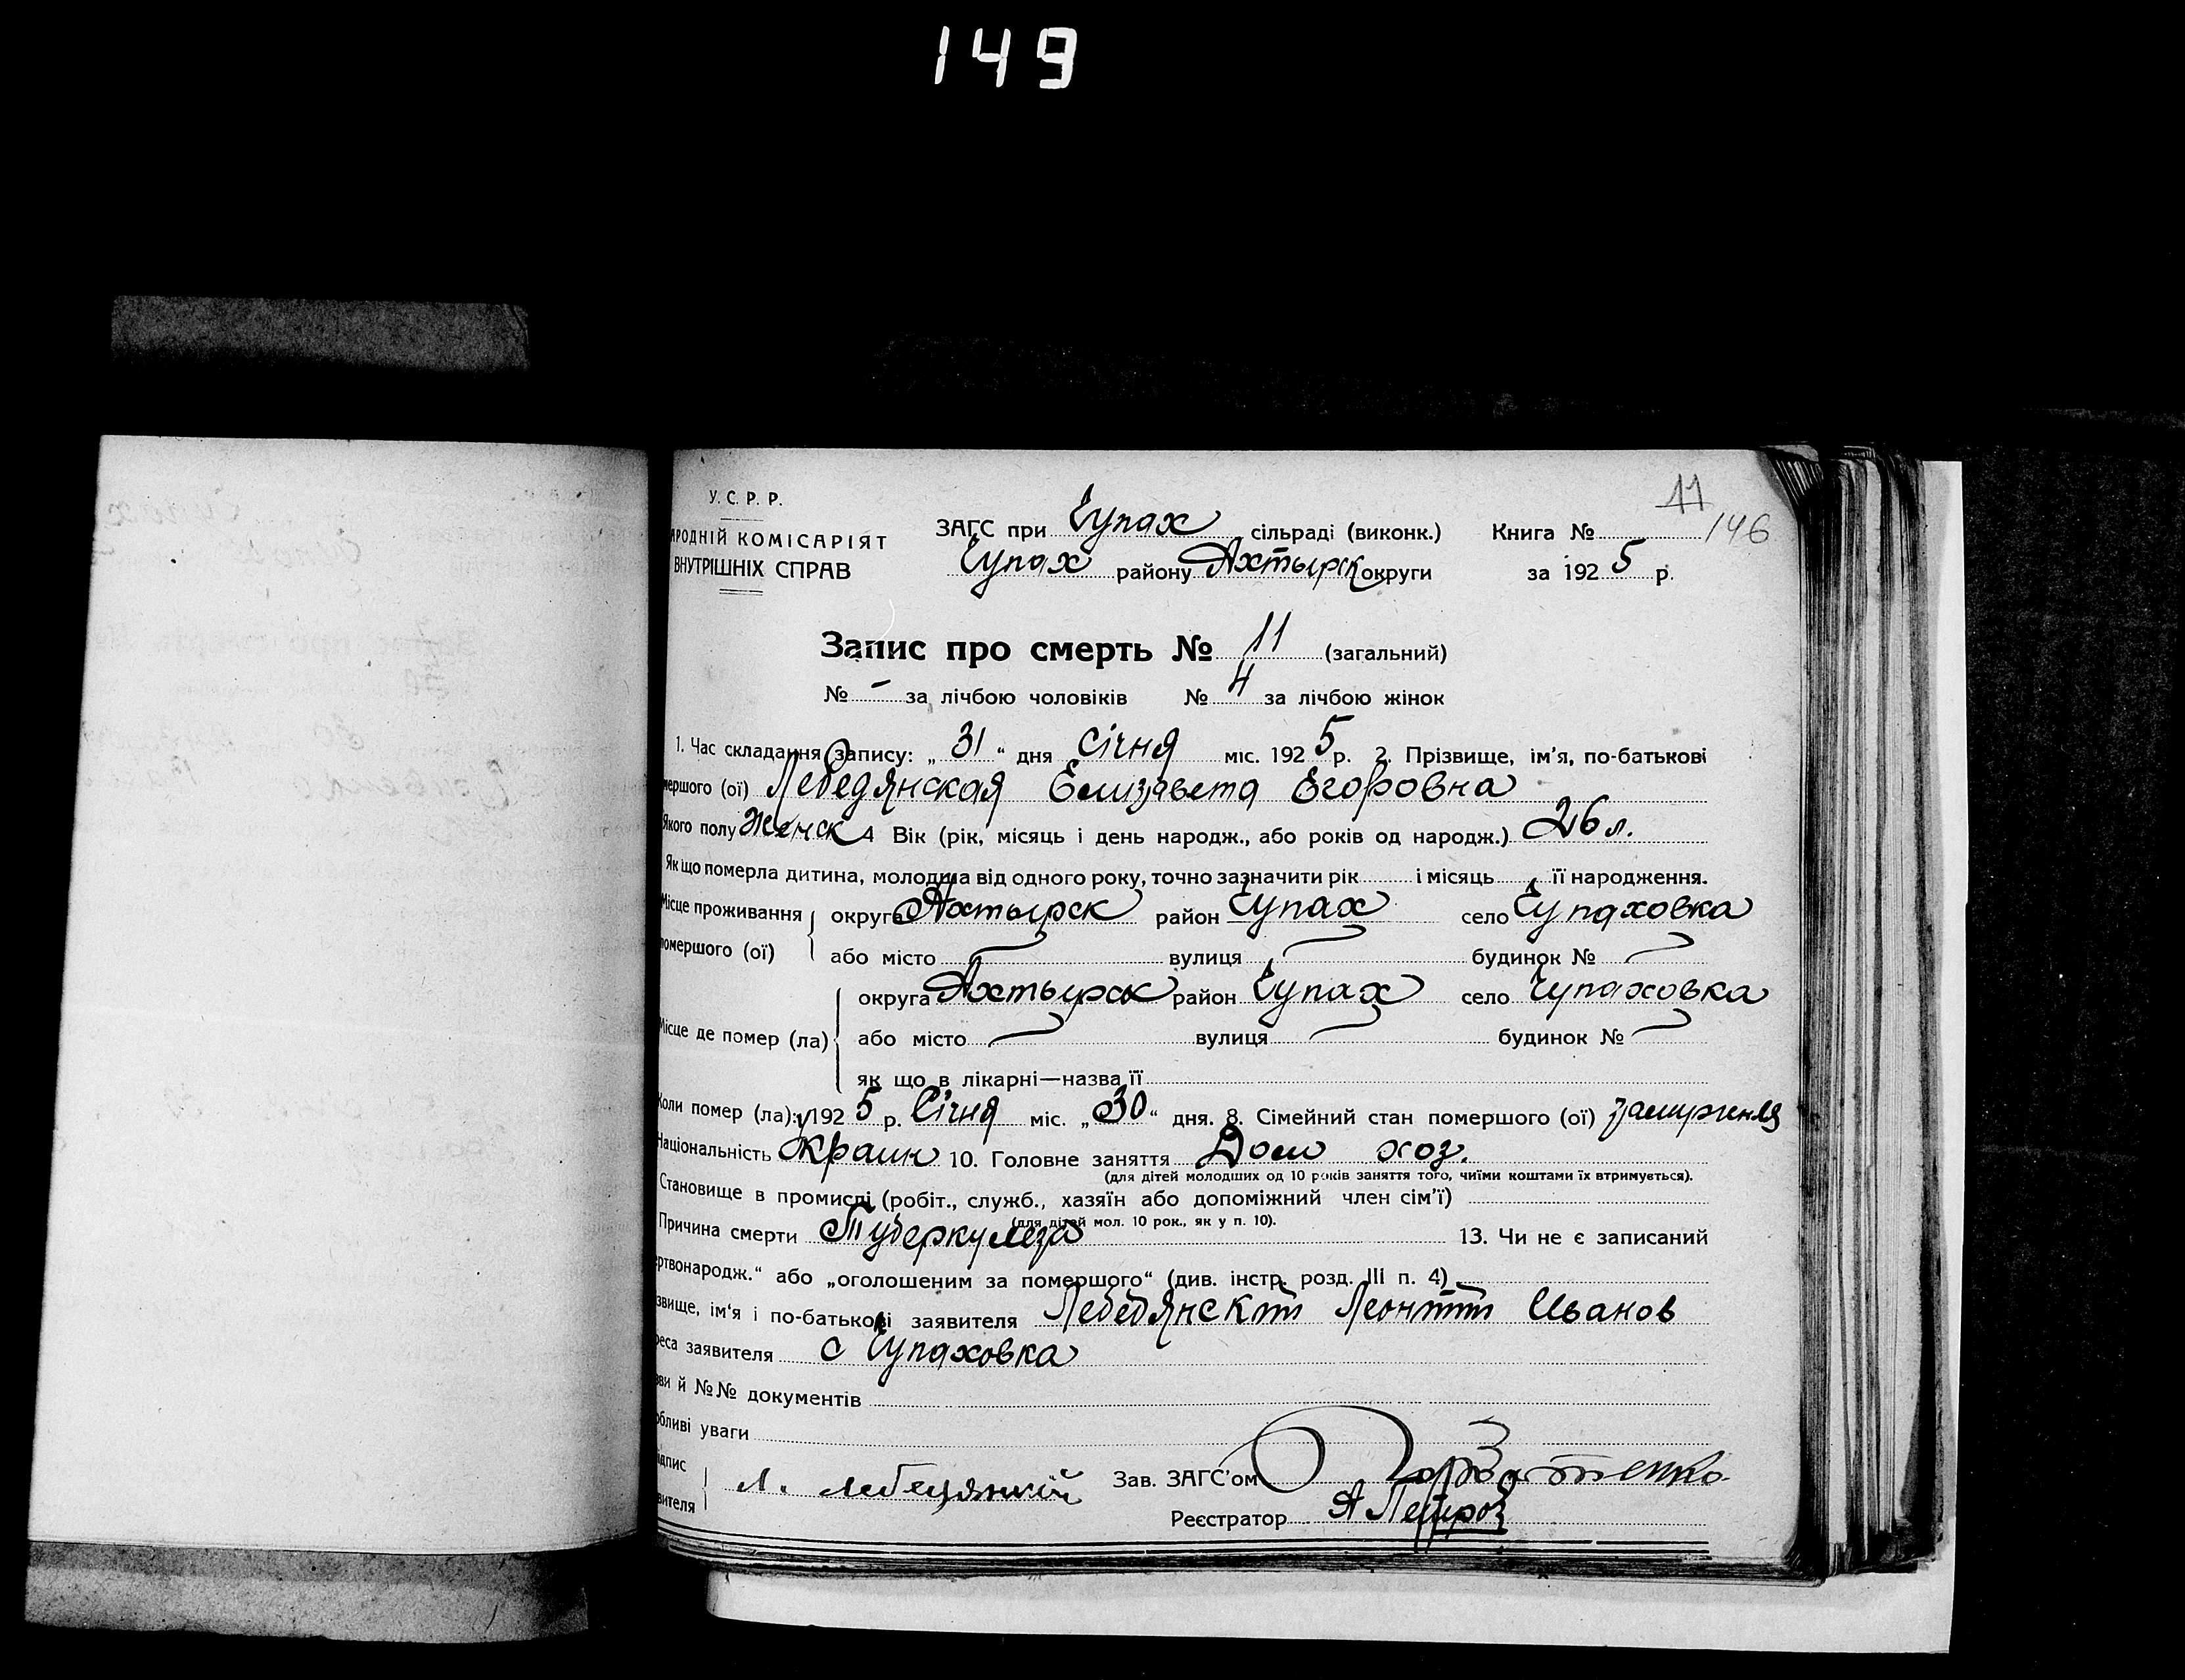 149
У. С. Р. Р.
11
РОДНІЙ КОМІСАРІЯТ
ВНУТРІШНІХ СПРАВ
ЗАГС при Чупах сільраді (виконк.) Книга № 146
Чупах району Ахтырск округи за 1925 р.
Запис про смерть № 11 (загальний)
№ - за лічбою чоловіків № 4 за лічбою жінок
1. Час складання запису: „31“ дня Січня міс. 1925 р. 2. Прізвище, ім'я, по-батькові
мершого (ої) Лебедянская Елизавета Егоровна
Якого полу Женск 4 Вік (рік, місяць і день народж., або років од народж.) 26 л.
Як що померла дитина, молодша від одного року, точно зазначити рік і місяць її народження.
Місце проживання округа Ахтырск район Чупах село Чупаховка
помершого (ої) або місто вулиця будинок №
округа Ахтырск район Чупах село Чупаховка
Місце де помер (ла) або місто вулиця будинок №
як що в лікарні—назва її
Коли помер (ла): 1925 р. Січня міс. „30“ дня. 8. Сімейний стан помершого (ої)
Національність Украин 10. Головне заняття Дом хоз.
(для дітей молодших од 10 років заняття того, чиїми коштами їх втримується).
Становище в промислі (робіт., служб., хазяїн або допоміжний член сім'ї)
(для дітей мол. 10 рок., як у п. 10).
Причина смерти Туберкулеза 13. Чи не є записаний
ртвонародж.“ або „оголошеним за помершого“ (див. інстр. розд. III п. 4)
звище, ім'я і по-батькові заявителя Лебедянскій Леонтій Иванов
реса заявителя с Чупаховка
зви й №№ документів
обливі уваги
ідпис
Л. Лебедянкій Зав. ЗАГС'ом
вителя
Реєстратор А Петров